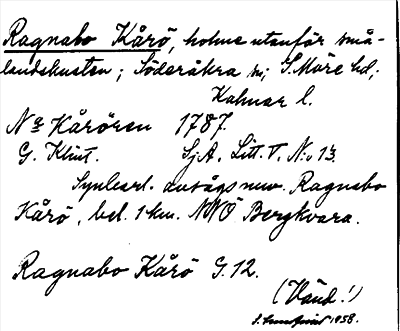 Ragnabo Kårö, holme utanför små-
landskusten; Söderåkra sn; S. Möre hd;
Kalmar l.
Na Kårören 1787.
G. Klint. SjA. Litt. V. N:o 13.
Synl. earl. avsågs nuv. Ragnabo
Kårö, bel. 1 km. NNÖ Bergkvara.
Ragnabo Kårö G.12.
(Vänd!)
1958.